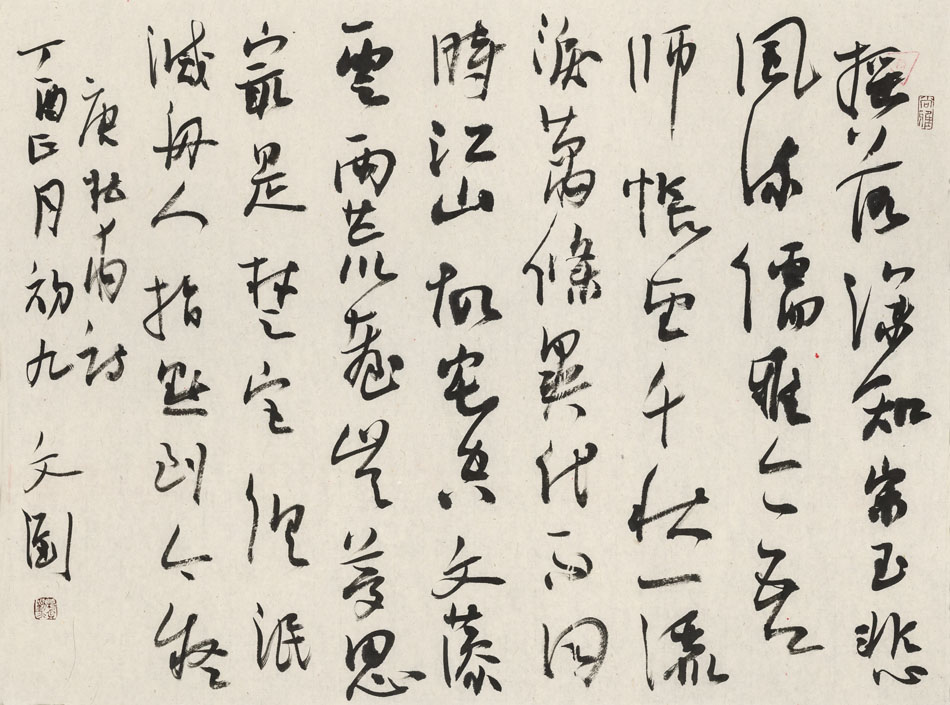 搖落深知宋玉悲
风流儒雅亦吾
师悵望千秋一灑
淚蕭條異代不同
時江山故宅空文藻
雲雨荒臺豈夢思
最是楚宫俱泯
滅舟人指點到今疑
唐杜甫诗
丁酉正月初九 文